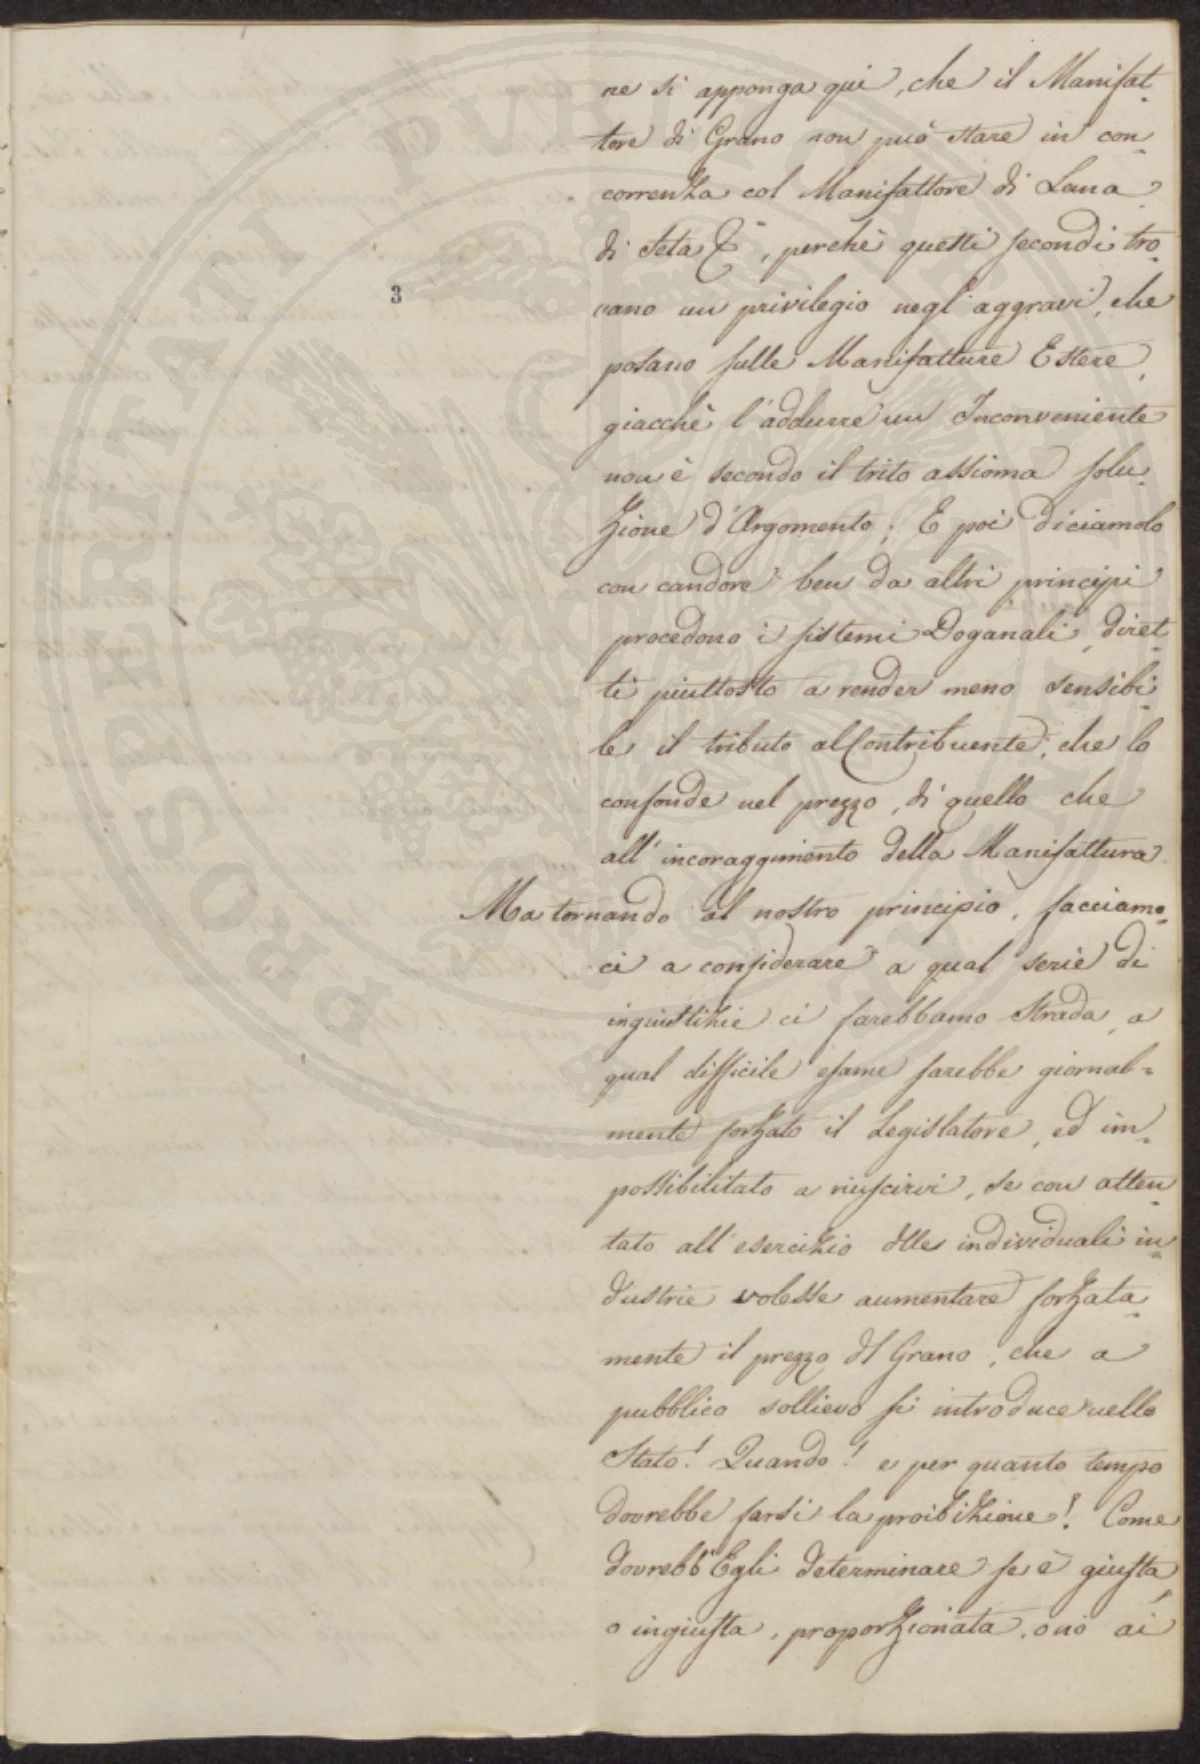 ne si apponga qui, che il Manifat-
tore di Grano non può stare in con-
correnza col Manifattore di Lana
di Seta &, perchè questi secondi tro-
vano un privilegio negl'aggravi, che
3
posano sulle Manifatture Estere,
giacchè l'addurre un Inconveniente
non è secondo il trito assioma solu-
zione d'Argomento; E poi diciamolo
con candore ben da altri principi
procedono i sistemi Doganali, diret-
ti piuttosto a render meno sensibi-
le il tributo al Contribuente, che lo
confonde nel prezzo, di quello che
all'incoraggimento della Manifattura.
Ma tornando al nostro principio, facciamo-
ci a considerare a qual serie di
ingiustizie ci farebbamo Strada, a
qual difficile esame sarebbe giornal-
mente forzato il Legislatore, ed im-
possibilitato a riuscirvi, se con atten-
tato all'esercizio dlle individuali in-
dustrie volesse aumentare forzata-
mente il prezzo dl Grano, che a
pubblico sollievo si introduce nello
Stato! Quando! e per quanto tempo
dovrebbe farsi la proibizione! Come
dovrebb'Egli determinare se è giusta,
o ingiusta, proporzionata, o nò ai
PROSPERITATI PUBLICAE